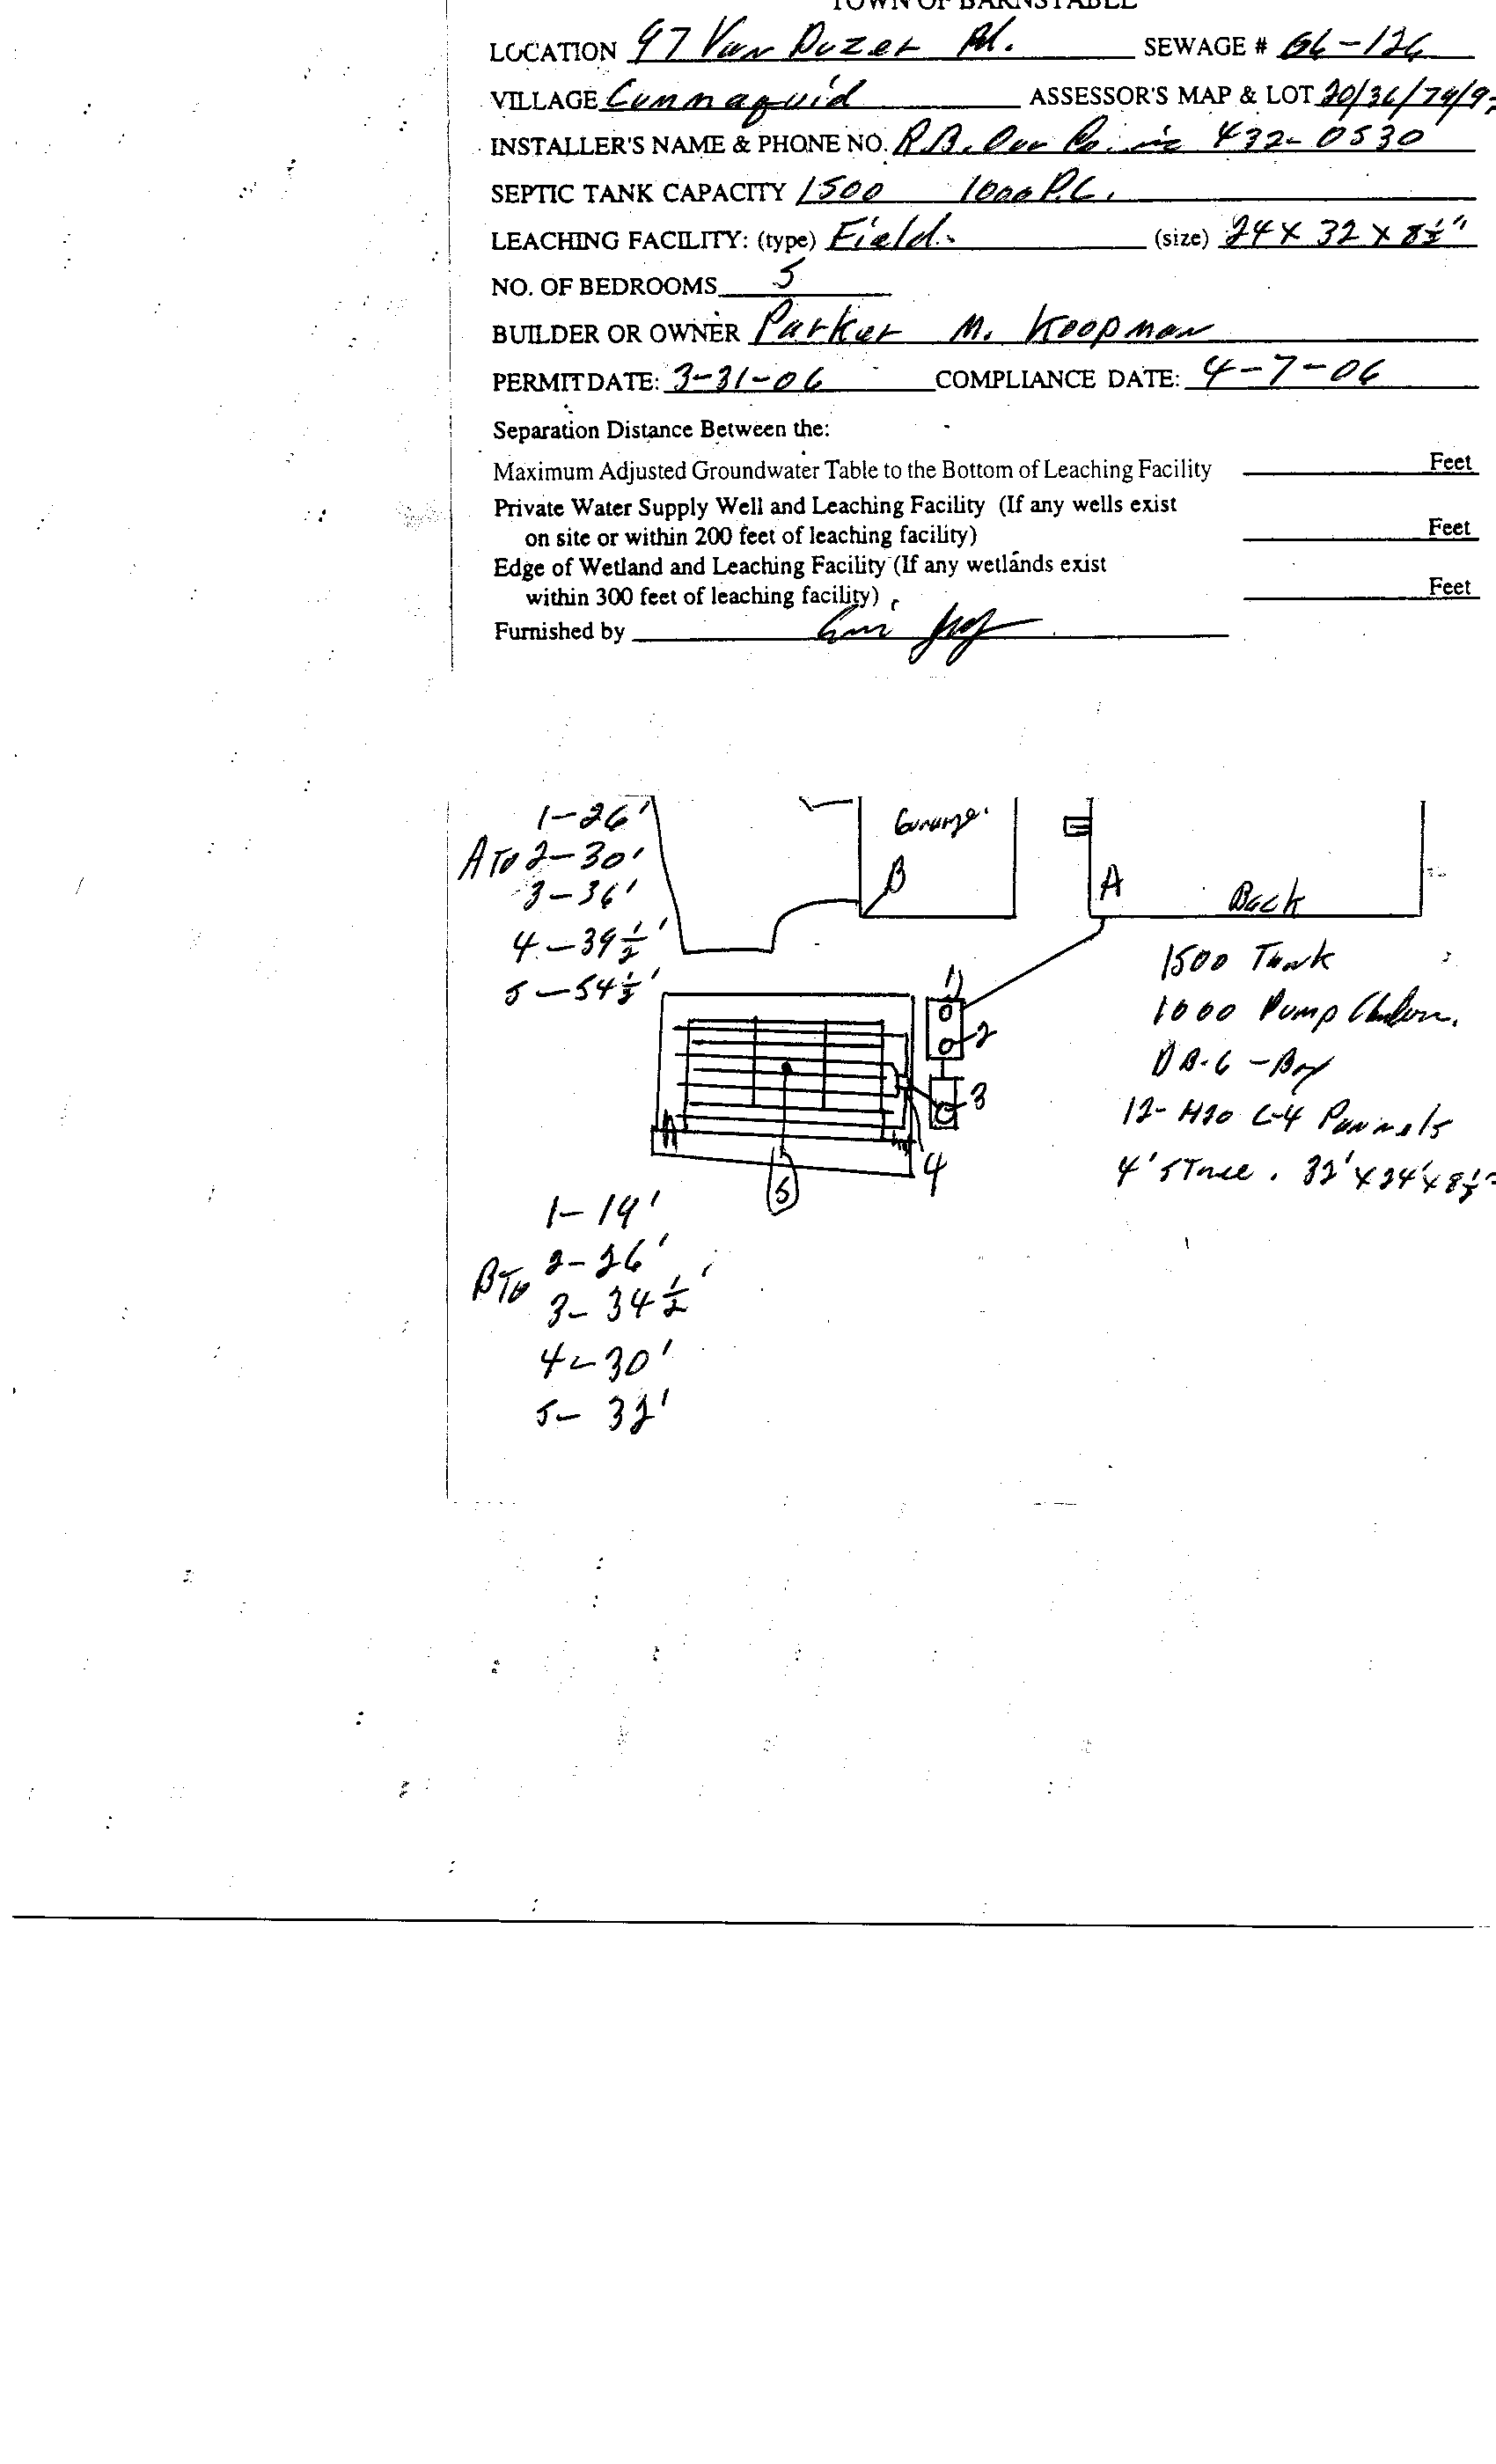 TOWN OF BARNSTABLE
LOCATION 97 Van Duzer Rd. SEWAGE # 06-126
VILLAGE Cummaquid ASSESSOR'S MAP & LOT
INSTALLER'S NAME & PHONE NO. R.B. Our Co. inc 432-0530
SEPTIC TANK CAPACITY 1500 1000 P.C.
LEACHING FACILITY: (type) Field. (size) 24 x 32 x 8½"
NO. OF BEDROOMS 5
BUILDER OR OWNER Parker M. Koopman
PERMIT DATE: 3-31-06 COMPLIANCE DATE: 4-7-06
Separation Distance Between the:
Maximum Adjusted Groundwater Table to the Bottom of Leaching Facility Feet
Private Water Supply Well and Leaching Facility (If any wells exist
on site or within 200 feet of leaching facility) Feet
Edge of Wetland and Leaching Facility (If any wetlands exist
within 300 feet of leaching facility) Feet
Furnished by
1-26'
A To 2-30'
3-36'
4-39½'
5-54½'
Garage.
B
A
Back
1
2
3
4
5
1500 Tank
1000 Pump
DB-6 - Box
12- H20 C-4 Pannels
4' STone. 32' x 24' x 8½"
1-19'
B To 2-26'
3-34½'
4-30'
5-32'